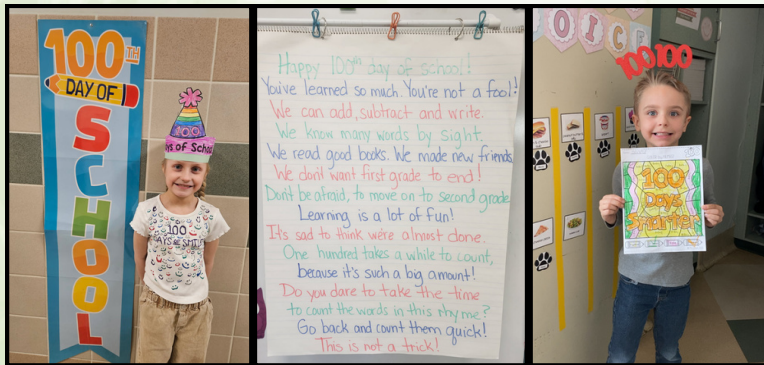 100TH
DAY OF
SCHOOL
100
Days of School
100
DAYS of SMILES
Happy 100th day of school!
You've learned so much. You're not a fool!
We can add, subtract and write.
We know many words by sight.
We read good books. We made new friends.
We don't want first grade to end!
Don't be afraid, to move on to second grade
Learning is a lot of fun!
It's sad to think we're almost done.
One hundred takes a while to count,
because it's such a big amount!
Do you dare to take the time
to count the words in this rhyme?
Go back and count them quick!
This is not a trick!
OICE
100 100
100
Days
Smarter